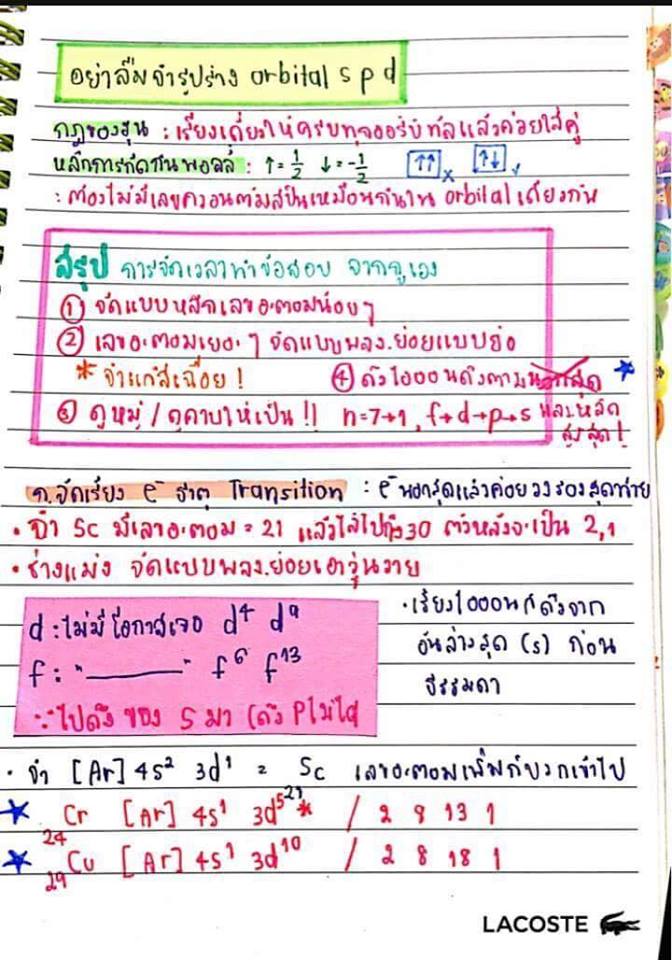 อย่าลืมจำรูปร่าง orbital s p d
กฎของฮุน : เรียงเดี่ยวให้ครบทุกออร์บิทัลแล้วค่อยใส่คู่
หลักการกีดกันพอลลี : ↑=1/2 ↓=-1/2 [↑↑]x [↑↓]✓
: ต้องไม่มีเลขควอนตัมสปินเหมือนกันใน orbital เดียวกัน
สรุป การจัดเวลาทำข้อสอบ จากกูเอง
① จัดแบบหลักเลขอะตอมน้อยๆ
② เลขอะตอมเยอะๆ จัดแบบพลัง.ย่อยแบบย่อ
* จำแก๊สเฉื่อย! ④ ดึงไอออนดึงตามนอกสุด
③ ดูหมู่ / ดูคาบให้เป็น!! n=7→1, f→d→p→s และหลัก
สูงสุด!
ก.จัดเรียง e⁻ ธาตุ Transition : e⁻ นอกสุดแล้วค่อยวงรองสุดท้าย
• จำ Sc มีเลขอะตอม = 21 แล้วไล่ไปถึง 30 ตัวหลังจะเป็น 2,1
• ช่างแม่ง จัดแบบพลัง.ย่อยเอาวุ่นวาย
d : ไม่มีโอกาสเจอ d⁴ d⁹
f : "———" f⁶ f¹³
∵ ไปดึงของ s มา (ดึง p ไม่ได้
• เรียงไอออนก็ดึงจาก
อันล่างสุด (s) ก่อน
ธรรมดา
• จำ [Ar] 4s² 3d¹ = Sc เลขอะตอมเพิ่มก็บวกเข้าไป
21
★ ₂₄Cr [Ar] 4s¹ 3d⁵ * / 2 8 13 1
★ ₂₉Cu [Ar] 4s¹ 3d¹⁰ / 2 8 18 1
LACOSTE